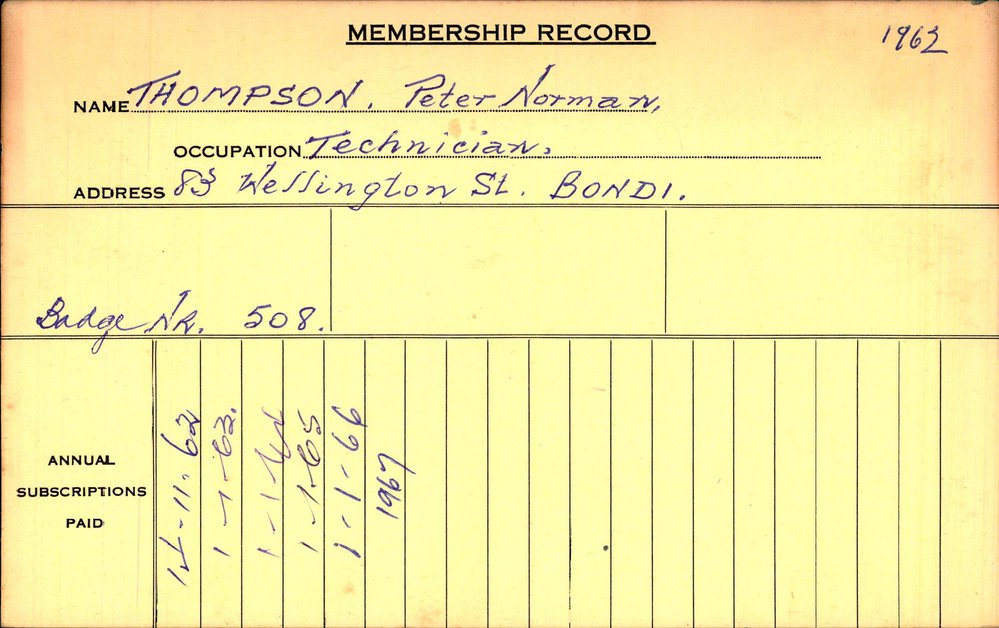 MEMBERSHIP RECORD 1962
NAME THOMPSON. Peter Norman,
OCCUPATION Technician.
ADDRESS 83 Wellington St. BONDI.
Badge NR. 508.
ANNUAL
SUBSCRIPTIONS
PAID
14-11-62
1-1-63.
1-1-64
1-1-65
1-1-66
1967